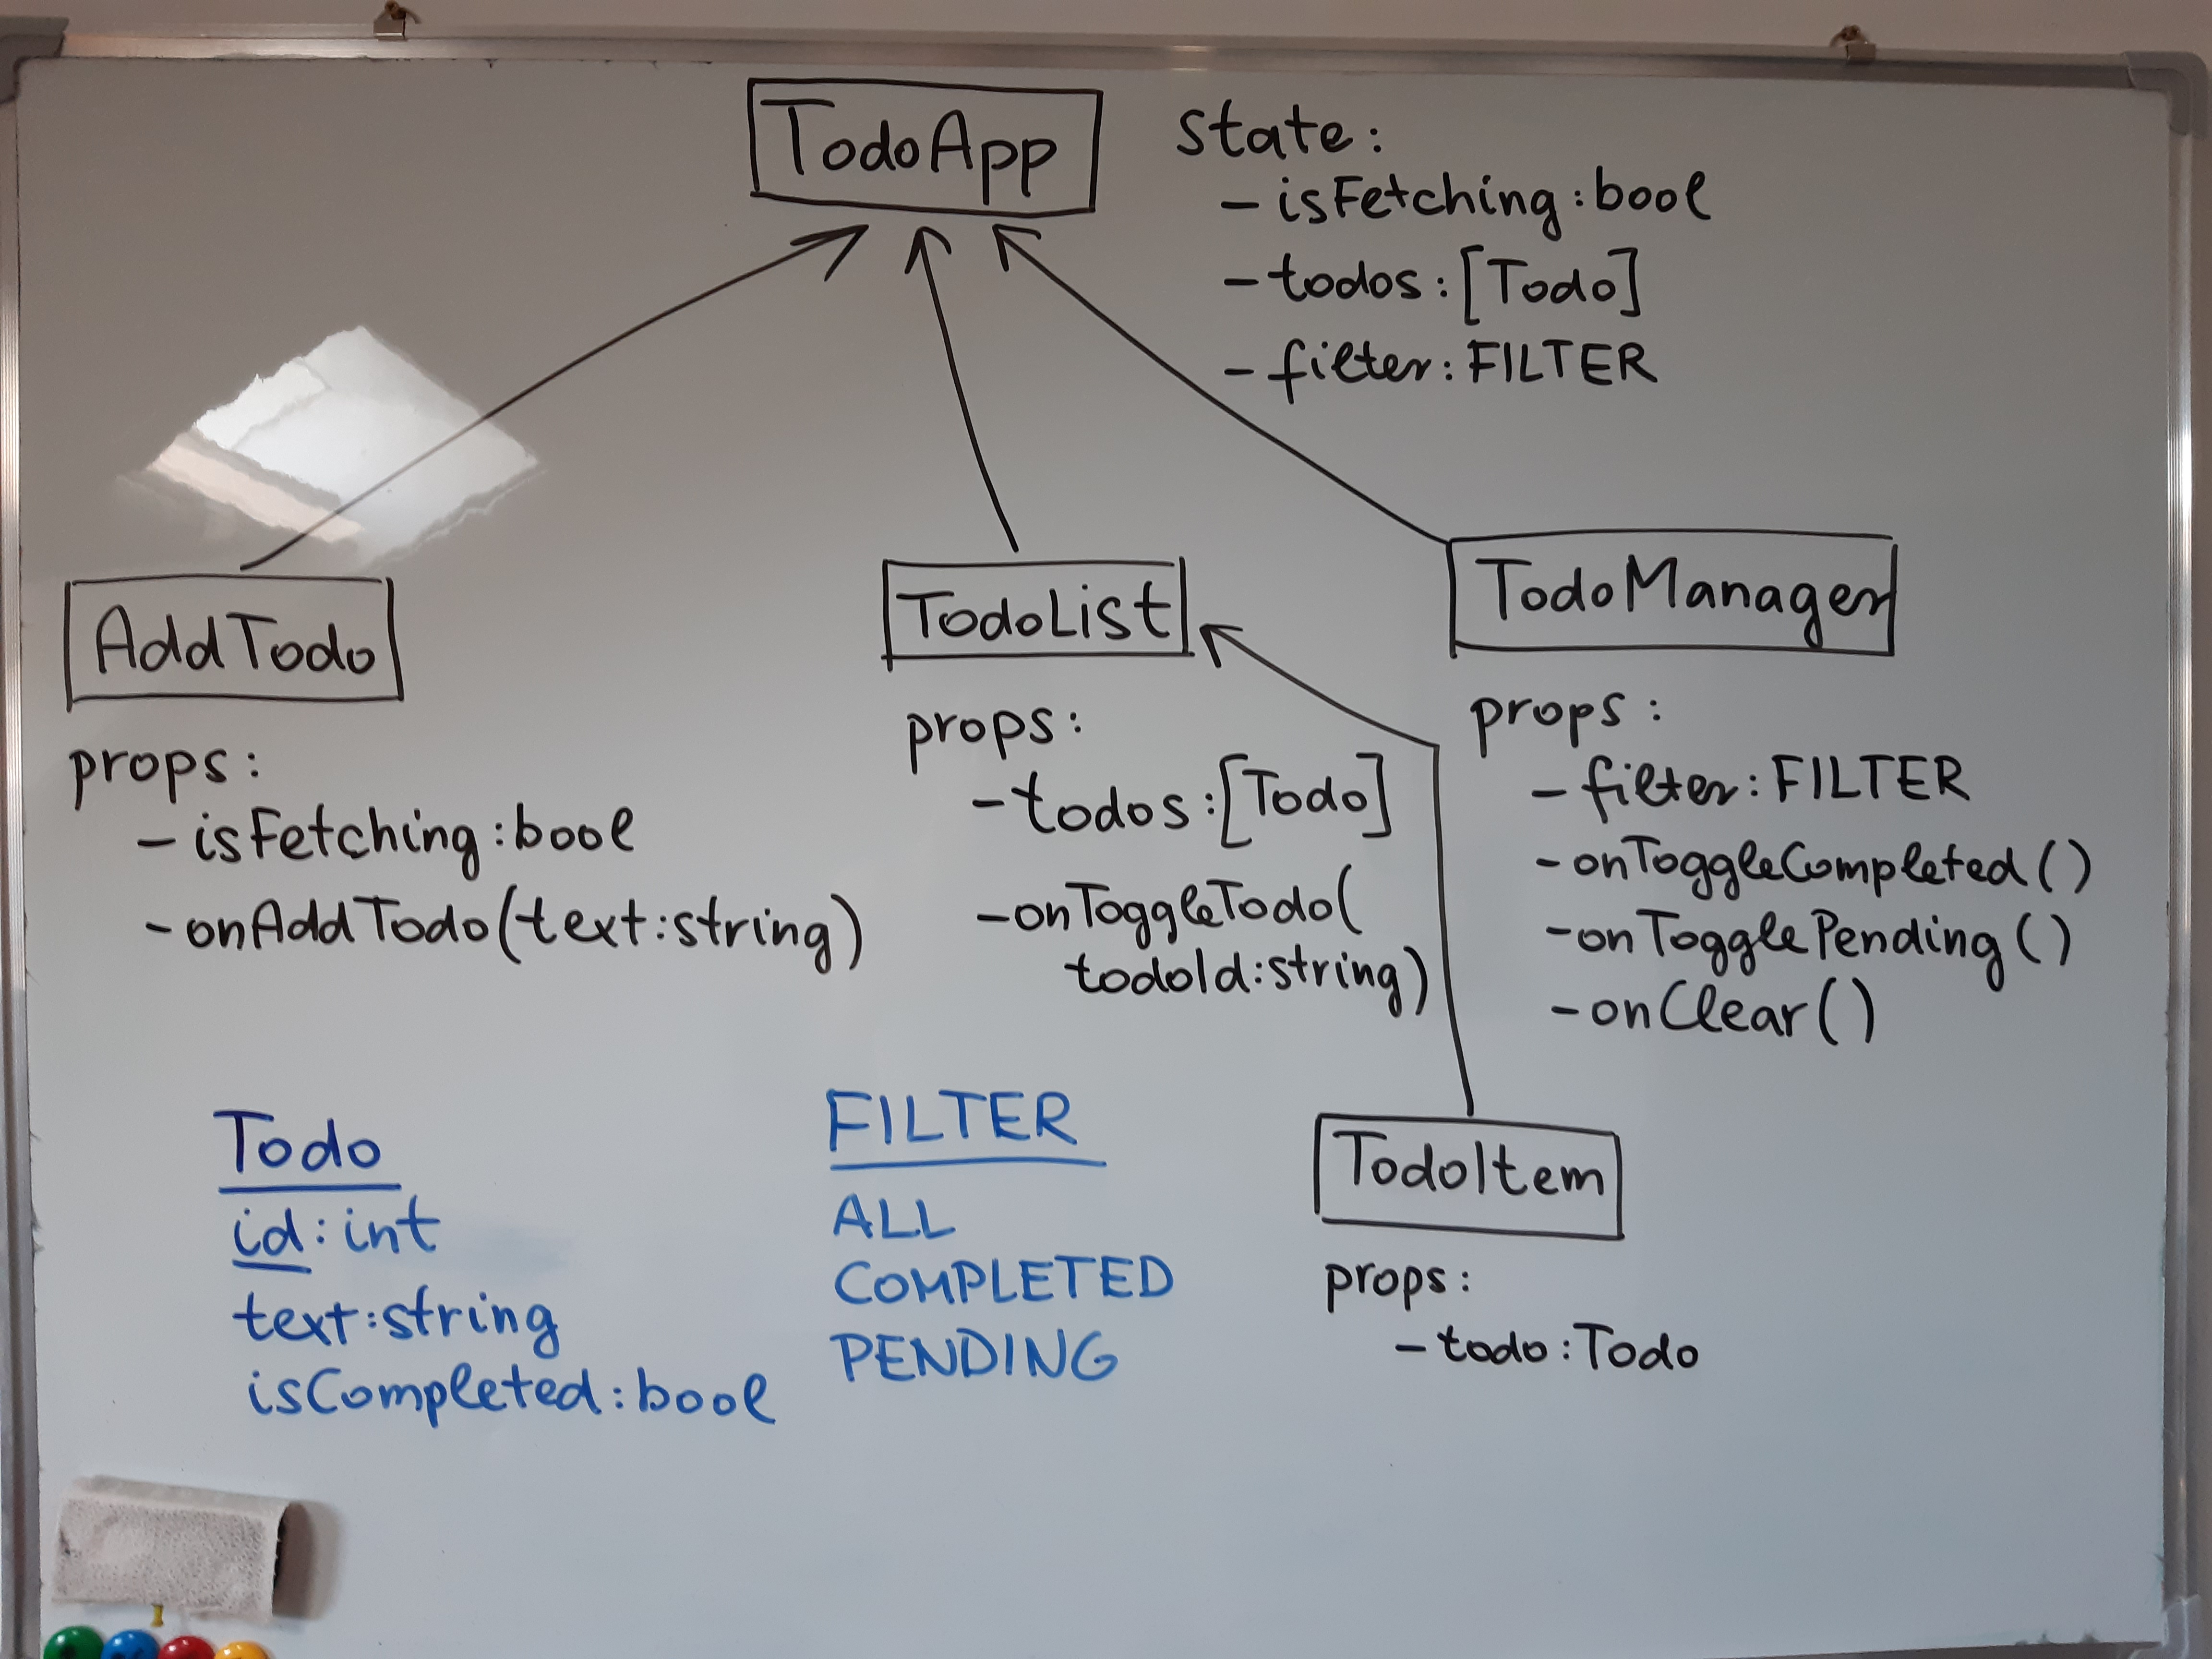 TodoApp
state:
- isFetching:bool
- todos:[Todo]
- filter:FILTER
AddTodo
props:
- isFetching:bool
- onAddTodo(text:string)
TodoList
props:
- todos:[Todo]
- onToggleTodo(
todoId:string)
TodoManager
props:
- filter:FILTER
- onToggleCompleted()
- onTogglePending()
- onClear()
TodoItem
props:
- todo:Todo
Todo
id:int
text:string
isCompleted:bool
FILTER
ALL
COMPLETED
PENDING